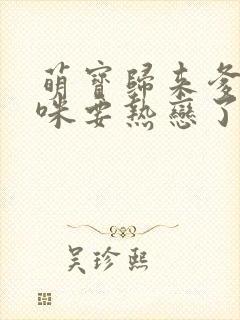 萌寶歸來爹
咪要熱戀了
吴珍熙